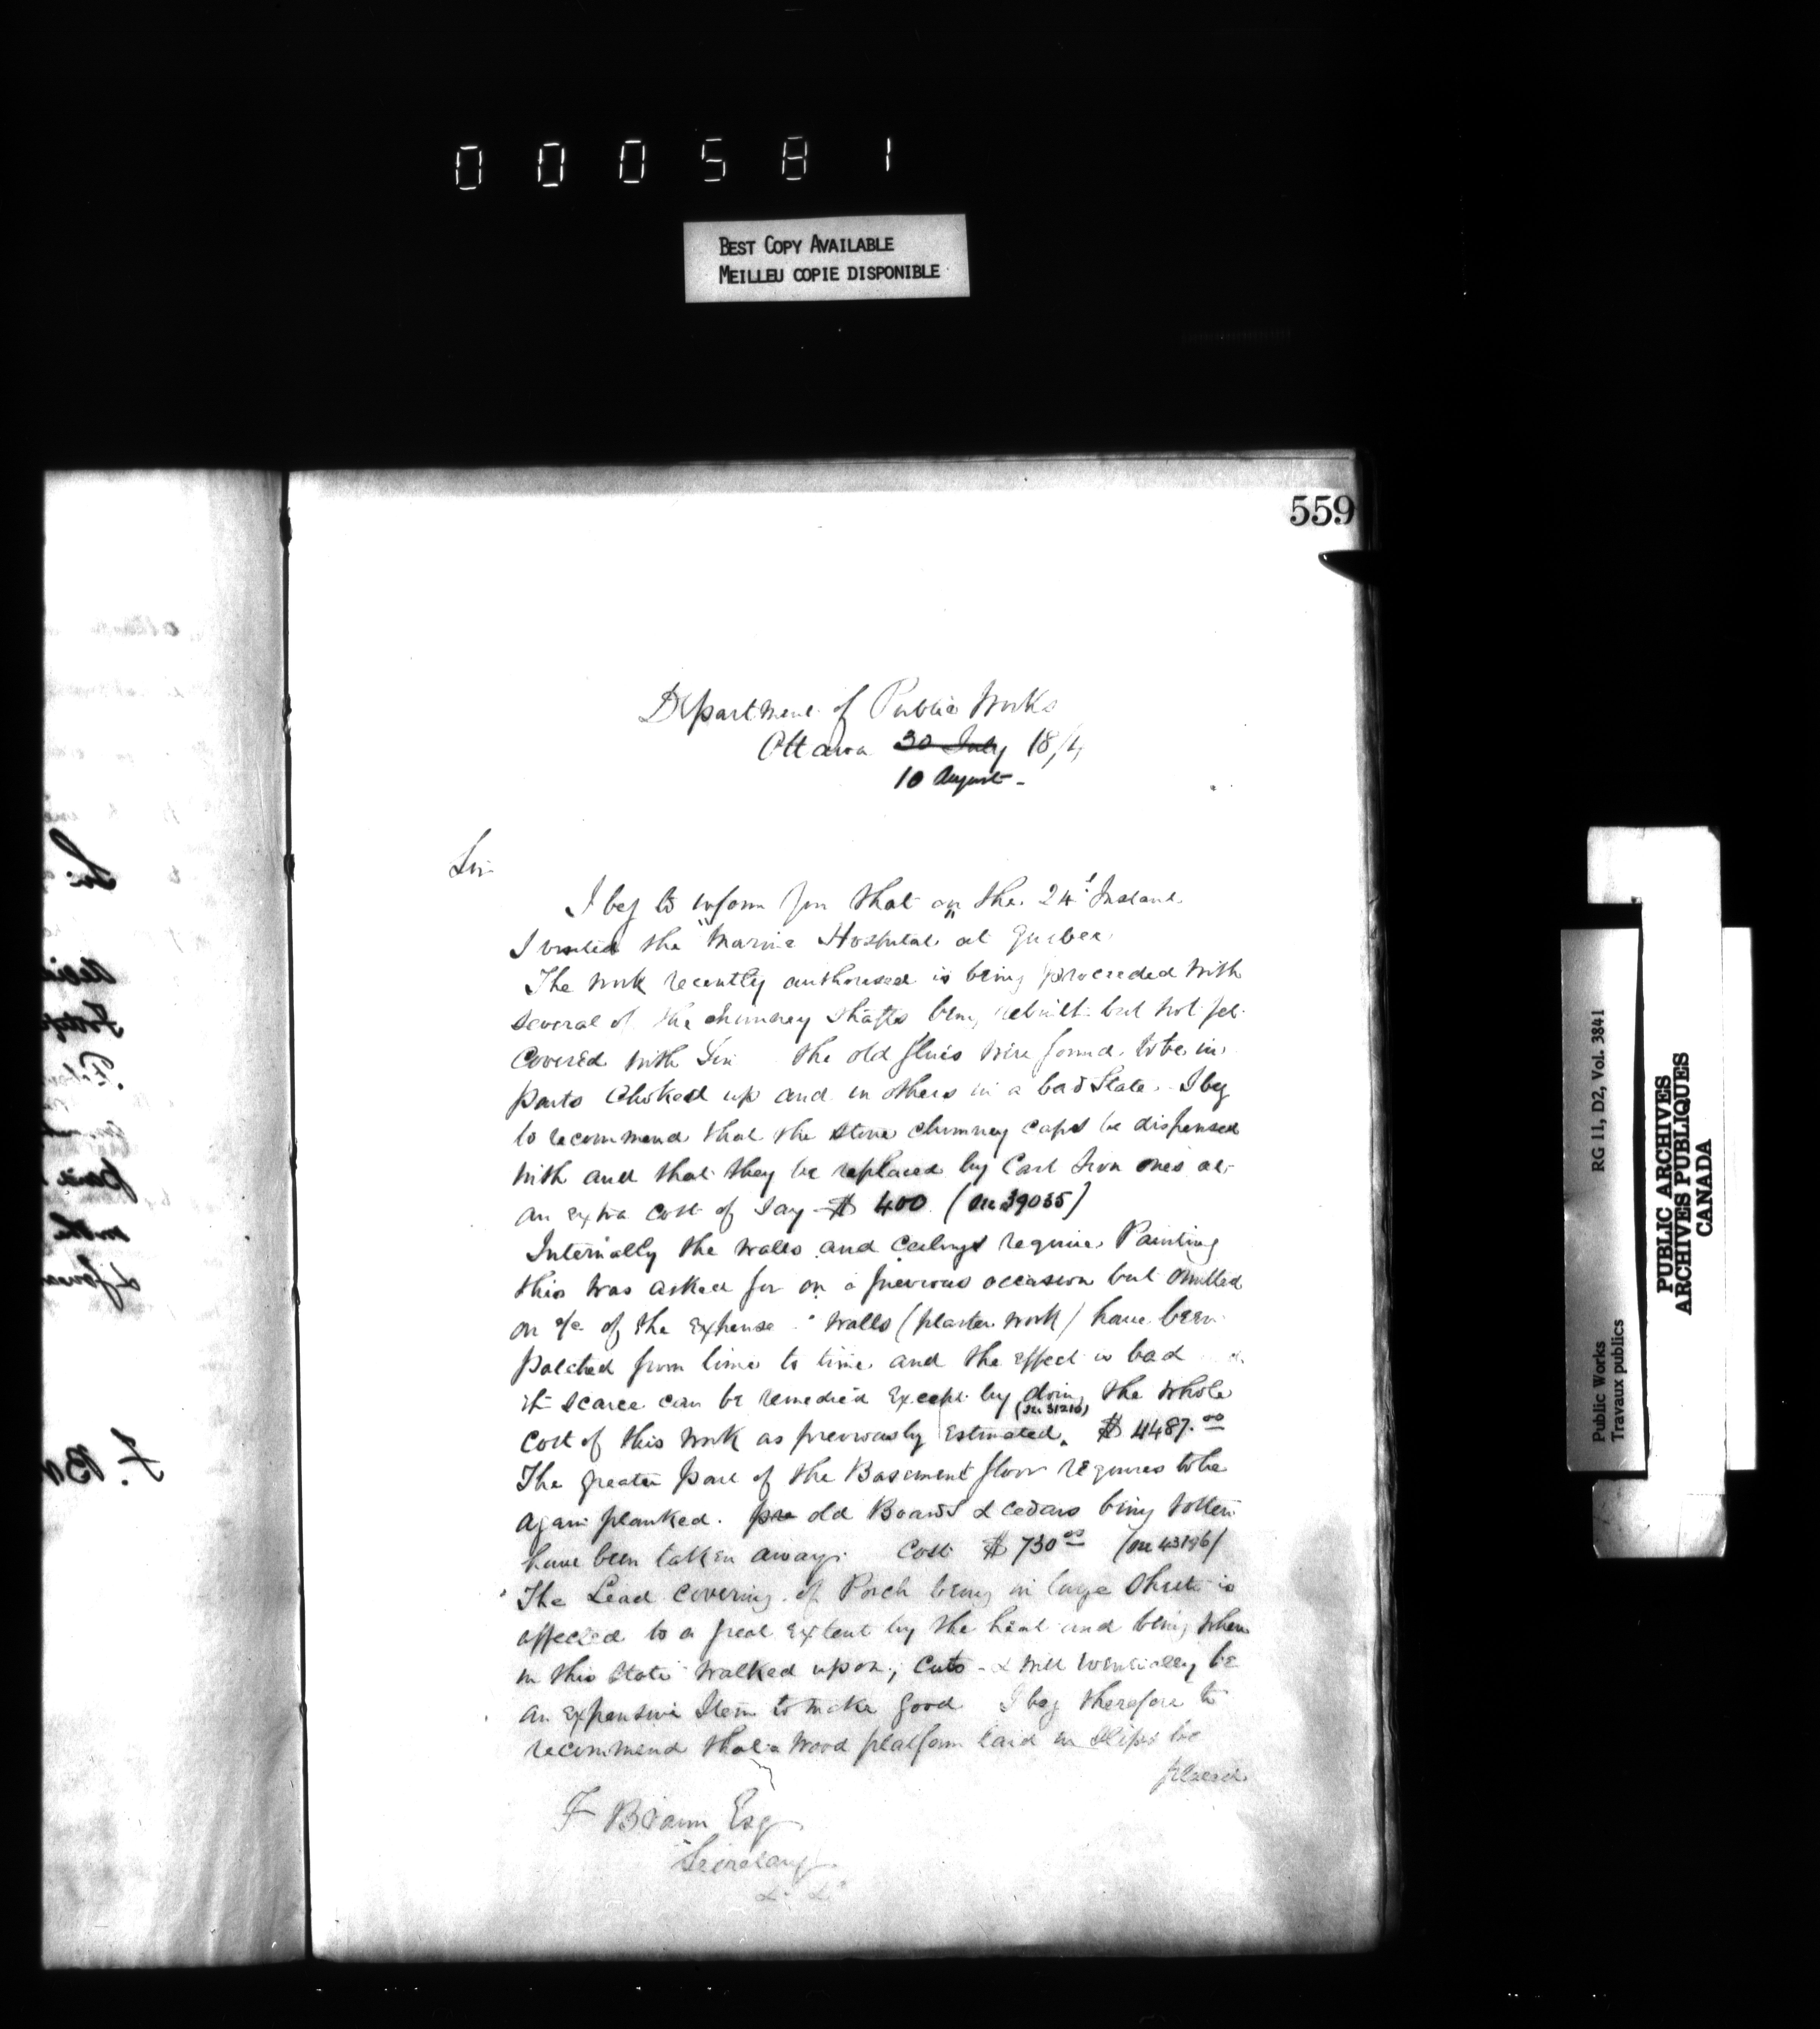 000581
BEST COPY AVAILABLE
MEILLEU COPIE DISPONIBLE
559
Department of Public Works
Ottawa 30 July 1874
10 August -
Sir
I beg to inform you that on the 24th Instant
I visited the "Marine Hospital" at Quebec.
The work recently authorised is being proceeded with
several of the chimney shafts being rebuilt but not yet
covered with Tin the old flues were found to be in
parts choked up and in others in a bad State. I beg
to recommend that the stone chimney caps be dispensed
with and that they be replaced by Cast Iron ones at
an extra cost of say $ 400 (See 39035)
Internally the walls and ceilings require Painting
this was asked for on a previous occasion but omitted
on a/c of the expense. Walls (plaster work) have been
patched from time to time and the effect is bad
it scarce can be remedied except by doing the whole
(See 31210)
cost of this work as previously estimated. $ 4487.00
The greater part of the Basement floor requires to be
again planked. old Boards & cedars being rotten
have been taken away. Cost $ 730 00 (See 43196)
The Lead covering of Porch being in large sheets is
affected to a great extent by the heat and being when
in this state walked upon, cuts - & will eventually be
an expensive Item to make good I beg therefore to
recommend that a wood platform laid in slips be
placed
F Braun Esq
Secretary
&c &c
Sir
F. Br
Public Works RG 11, D2, Vol. 3841
Travaux publics
PUBLIC ARCHIVES
ARCHIVES PUBLIQUES
CANADA